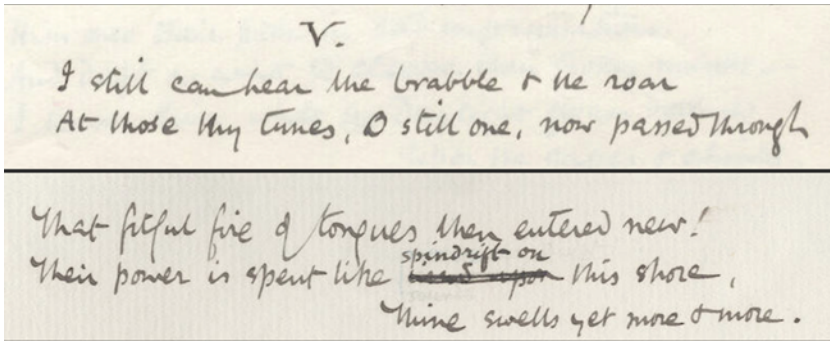 V.
I still can hear the brabble & the roar
At those thy tunes, O still one, now passed through
That fitful fire of tongues then entered new!
spindrift on
Their power is spent like upon this shore,
Thine swells yet more & more.